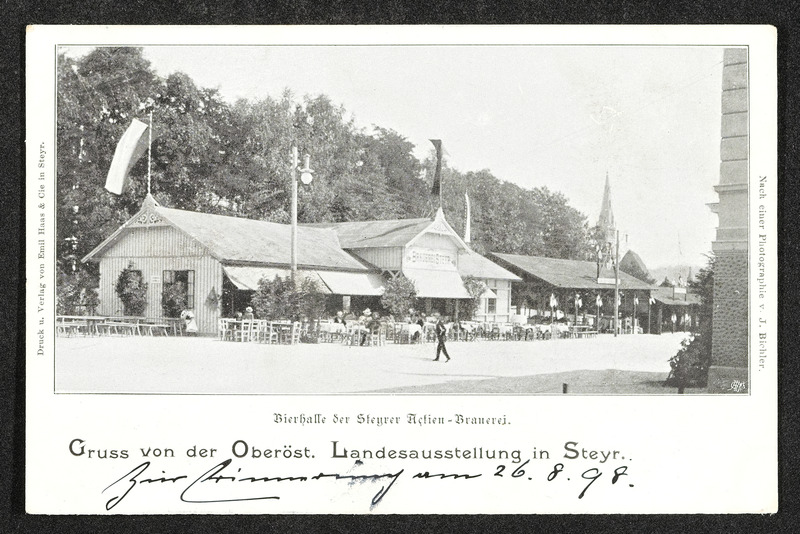 Druck u. Verlag von Emil Haas & Cie in Steyr.
Nach einer Photographie v. J. Bichler.
BRAUEREI STEYR
Bierhalle der Steyrer Actien-Brauerei.
Gruss von der Oberöst. Landesausstellung in Steyr.
Zur Erinnerung am 26. 8. 98.